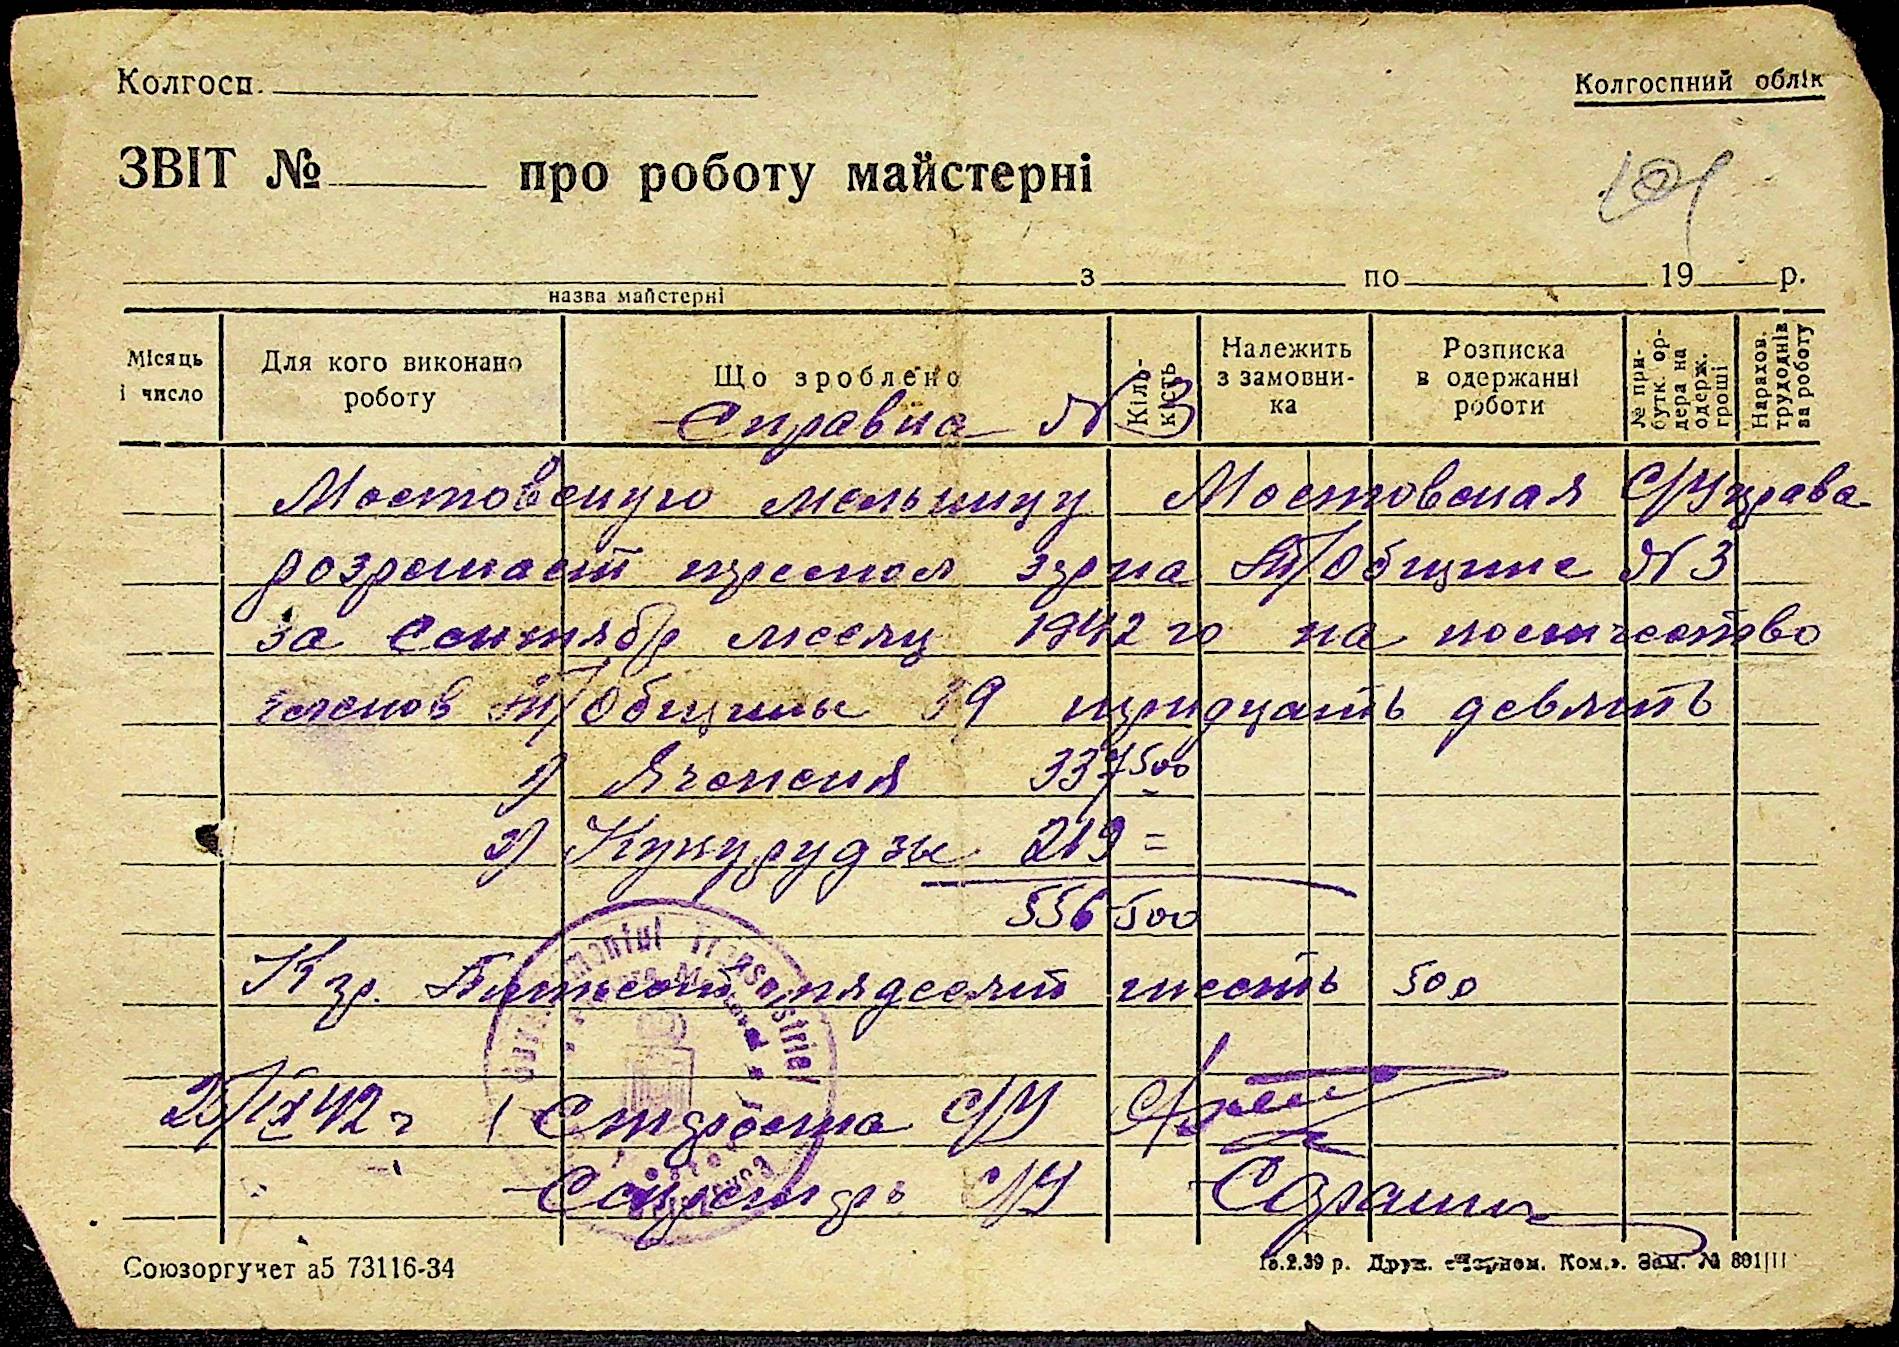 Колгосп.
Колгоспний облік
ЗВІТ № про роботу майстерні
з по 19 р.
назва майстерні
Місяць і число
Для кого виконано роботу
Що зроблено
Кіль-кість
Належить з замовни-ка
Розписка в одержанні роботи
№ при-бутк. ор-дера на одерж. гроші
Нарахов. трудоднів за роботу
Справка N 3
Мостовскую мельницу Мостовская С/Управа
розрешает помол зерна Т/Общине N 3
за сентябр месяц 1942 го на количество
членов Т/Общины 39 тридцать девять
1) Ячменя 337 500
2) Кукурудзы 219 =
556 500
Кгр. Пятьсот пядесят шесть 500
Guvernamentul Transnistriei
25/IX 42 г Староста С/У
Секретарь С/У
Союзоргучет а5 73116-34
15.2.39 р. Друк. Ком. Зам. № 801|II